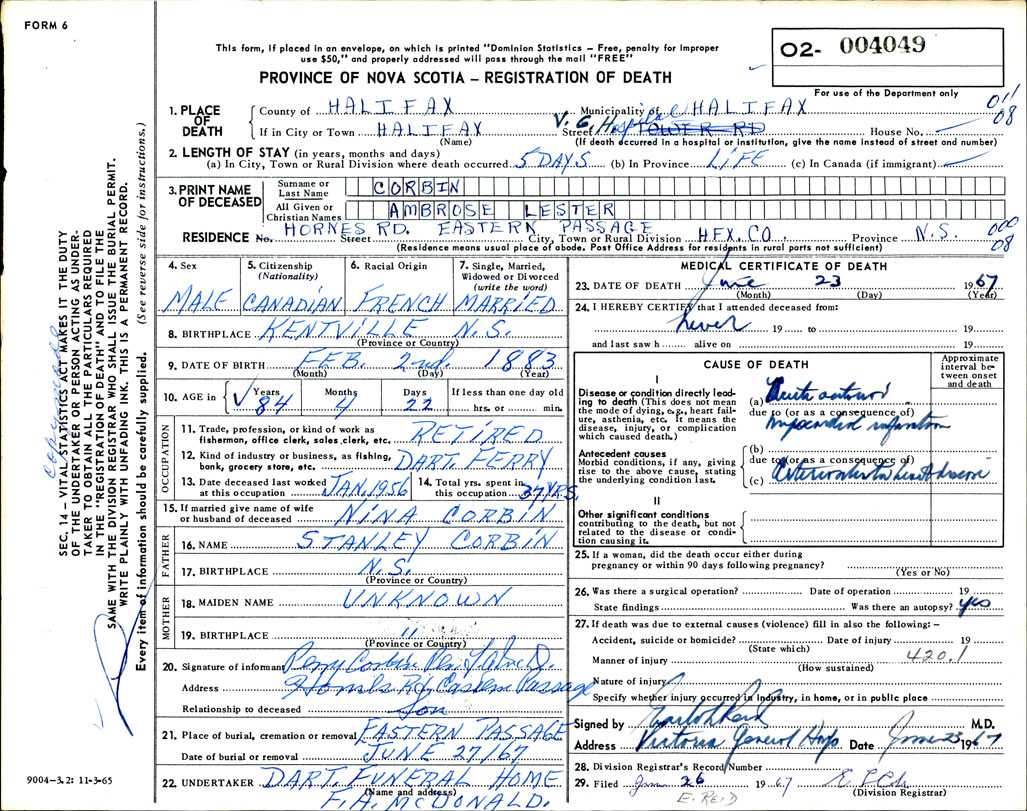 FORM 6
This form, if placed in an envelope, on which is printed "Dominion Statistics – Free, penalty for improper
use $50," and properly addressed will pass through the mail "FREE"
PROVINCE OF NOVA SCOTIA – REGISTRATION OF DEATH
02- 004049
For use of the Department only
011
08
1. PLACE OF DEATH
County of HALIFAX Municipality of HALIFAX
If in City or Town HALIFAX Street V. G. Hospital TOWER RD House No.
(Name) (If death occurred in a hospital or institution, give name instead of street and number)
2. LENGTH OF STAY (in years, months and days)
(a) In City, Town or Rural Division where death occurred 5 DAYS (b) In Province LIFE (c) In Canada (if immigrant)
3. PRINT NAME OF DECEASED
Surname or Last Name CORBIN
All Given or Christian Names AMBROSE LESTER
RESIDENCE No. HORNES RD. Street EASTERN PASSAGE City, Town or Rural Division HFX. CO. Province N.S.
000
08
(Residence means usual place of abode. Post Office Address for residents in rural parts not sufficient)
4. Sex MALE
5. Citizenship (Nationality) CANADIAN
6. Racial Origin FRENCH
7. Single, Married, Widowed or Divorced (write the word) MARRIED
8. BIRTHPLACE KENTVILLE N.S.
(Province or Country)
9. DATE OF BIRTH FEB. 2nd. 1883
(Month) (Day) (Year)
10. AGE in Years 84 Months 4 Days 22 If less than one day old hrs. or min.
OCCUPATION
11. Trade, profession, or kind of work as
fisherman, office clerk, sales clerk, etc. RETIRED
12. Kind of industry or business, as fishing,
bank, grocery store, etc. DART. FERRY
13. Date deceased last worked at this occupation JAN. 1956
14. Total yrs. spent in this occupation 37 YRS.
15. If married give name of wife
or husband of deceased NINA CORBIN
FATHER
16. NAME STANLEY CORBIN
17. BIRTHPLACE N.S.
(Province or Country)
MOTHER
18. MAIDEN NAME UNKNOWN
19. BIRTHPLACE "
(Province or Country)
20. Signature of informant Percy Corbin Per
Address Rd, Eastern Passage
Relationship to deceased Son
21. Place of burial, cremation or removal EASTERN PASSAGE
Date of burial or removal JUNE 27/67
22. UNDERTAKER DART. FUNERAL HOME
(Name and address)
F. A. McDONALD.
MEDICAL CERTIFICATE OF DEATH
23. DATE OF DEATH June 23 1967
(Month) (Day) (Year)
24. I HEREBY CERTIFY that I attended deceased from:
never 19 to 19
and last saw h alive on 19
CAUSE OF DEATH
Approximate interval between onset and death
I
Disease or condition directly leading to death (This does not mean
the mode of dying, e.g., heart failure, asthenia, etc. It means the
disease, injury, or complication
which caused death.)
(a) Acute
due to (or as a consequence of)
myocardial infarction
Antecedent causes
Morbid conditions, if any, giving
rise to the above cause, stating
the underlying condition last.
(b)
due to (or as a consequence of)
(c) heart disease
II
Other significant conditions
contributing to the death, but not
related to the disease or condition causing it.
25. If a woman, did the death occur either during
pregnancy or within 90 days following pregnancy?
(Yes or No)
26. Was there a surgical operation? Date of operation 19
State findings Was there an autopsy? yes
27. If death was due to external causes (violence) fill in also the following: –
Accident, suicide or homicide? Date of injury 19
(State which)
420.1
Manner of injury
(How sustained)
Nature of injury
Specify whether injury occurred in Industry, in home, or in public place
Signed by M.D.
Address Victoria General Hosp Date June 23 1967
28. Division Registrar's Record Number
29. Filed June 26 1967
(Division Registrar)
E. REID
SEC. 14 – VITAL STATISTICS ACT MAKES IT THE DUTY
OF THE UNDERTAKER OR PERSON ACTING AS UNDERTAKER TO OBTAIN ALL THE PARTICULARS REQUIRED
IN THE "REGISTRATION OF DEATH" AND TO FILE THE
SAME WITH THE DIVISION REGISTRAR WHO SHALL ISSUE THE BURIAL PERMIT.
WRITE PLAINLY WITH UNFADING INK. THIS IS A PERMANENT RECORD.
Every item of information should be carefully supplied. (See reverse side for instructions.)
9004-3.2: 11-3-65